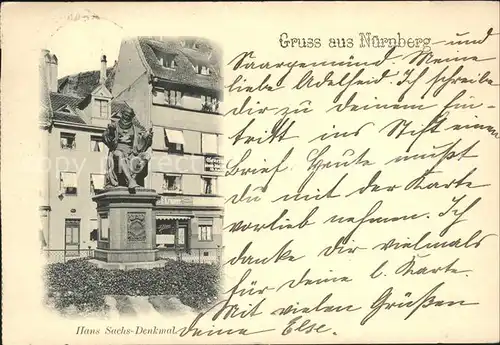 Gruss aus Nürnberg - und
Saargemünd. Meine
liebe Adelheid. Ich schreibe
dir zu deinem Ein-
tritt ins Stift einen
Brief. Heute mußt
du mit der Karte
vorlieb nehmen. Ich
danke dir vielmals
für deine l. Karte.
Mit vielen Grüßen
deine Else.
Hans Sachs-Denkmal